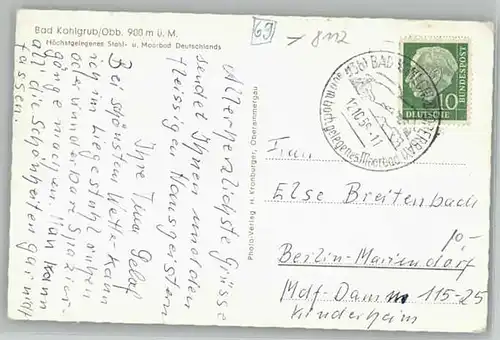 Bad Kohlgrub/Obb. 900 m ü. M.
Höchstgelegenes Stahl- u. Moorbad Deutschlands
69
8112
(13b) BAD KOHLGRUB
höchstgelegenes Moorbad
12.10.56-11
10
DEUTSCHE
BUNDESPOST
Allerherzlichste Grüsse
sendet Ihnen und den
fleissigen Hausgeistern
Ihre Tina
Bei schönstem Wetter kann
man im Liegestuhl ruhen
oder wunderbare Spazier-
gänge machen. Man kann
all die Schönheiten gar nicht
fassen.
Photo-Verlag H. Kronburger, Oberammergau
Frau
Else Breitenbach
10-
Berlin-Mariendorf
Mdf-Damm 115-25
Kinderheim